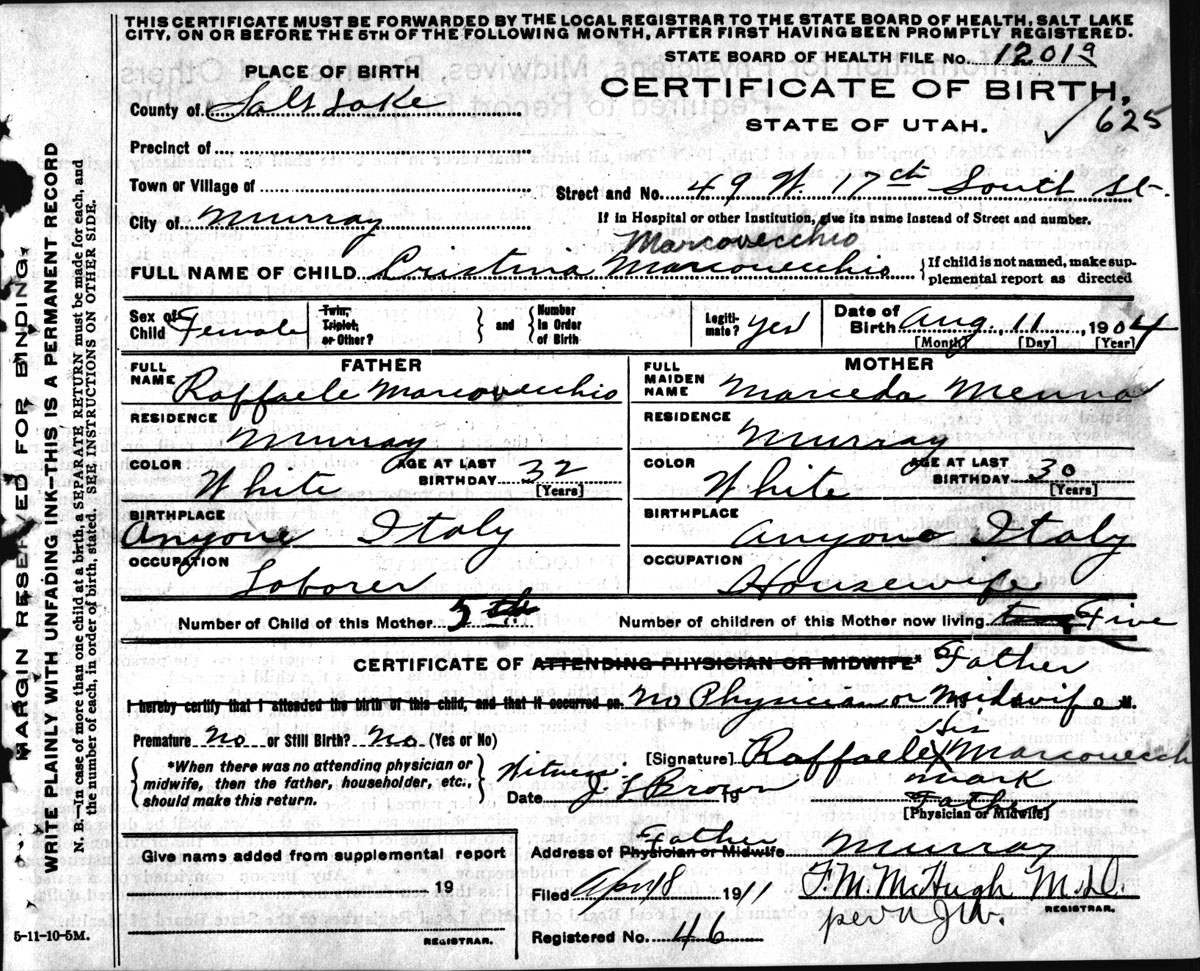 THIS CERTIFICATE MUST BE FORWARDED BY THE LOCAL REGISTRAR TO THE STATE BOARD OF HEALTH, SALT LAKE
CITY, ON OR BEFORE THE 5TH OF THE FOLLOWING MONTH, AFTER FIRST HAVING BEEN PROMPTLY REGISTERED.
STATE BOARD OF HEALTH FILE No. 12019
PLACE OF BIRTH
CERTIFICATE OF BIRTH,
County of Salt Lake
STATE OF UTAH.
✓ 625
Precinct of
Town or Village of
Street and No. 49 W. 17th South St.
City of Murray
If in Hospital or other Institution, give its name instead of Street and number.
Marcovecchio
FULL NAME OF CHILD Cristina Marcovecchio
{ If child is not named, make sup-
plemental report as directed
Sex of Child Female
Twin, Triplet, or Other?
and
Number in Order of Birth
Legiti-mate? yes
Date of Birth Aug. 11, 1904
[Month] [Day] [Year]
FATHER
MOTHER
FULL NAME Raffaele Marcovecchio
FULL MAIDEN NAME Marceda Menna
RESIDENCE Murray
RESIDENCE Murray
COLOR White
AGE AT LAST BIRTHDAY 32 [Years]
COLOR White
AGE AT LAST BIRTHDAY 30 [Years]
BIRTHPLACE Anyone Italy
BIRTHPLACE Anyone Italy
OCCUPATION Laborer
OCCUPATION Housewife
Number of Child of this Mother 5th
Number of children of this Mother now living Five
CERTIFICATE OF ATTENDING PHYSICIAN OR MIDWIFE* Father
I hereby certify that I attended the birth of this child, and that it occurred on No Physician or Midwife 19 M.
Premature No or Still Birth? No (Yes or No)
His
[Signature] Raffaele X Marcovecch
mark
*When there was no attending physician or
midwife, then the father, householder, etc.,
should make this return.
Witness
Date J. S Brown 19
Father
[Physician or Midwife]
Give name added from supplemental report
19
REGISTRAR.
Father
Address of Physician or Midwife Murray
Filed April 8 1911
F. M. McHugh M.D.
REGISTRAR.
per
Registered No. 46
5-11-10-5M.
MARGIN RESERVED FOR BINDING
WRITE PLAINLY WITH UNFADING INK—THIS IS A PERMANENT RECORD
N. B.—In case of more than one child at a birth, a SEPARATE RETURN must be made for each, and
the number of each, in order of birth, stated. SEE INSTRUCTIONS ON OTHER SIDE.